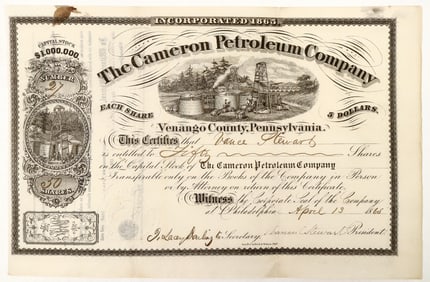 INCORPORATED 1865
CAPITAL STOCK
$1,000,000.
The Cameron Petroleum Company
NUMBER
21
EACH SHARE
5 DOLLARS.
Venango County, Pennsylvania.
This Certifies that Vance Stewart
is entitled to Fifty Shares
in the Capital Stock of The Cameron Petroleum Company
Transferable only on the Books of the Company in Person
or by Attorney on return of this Certificate.
50
SHARES.
Witness the Corporate Seal of the Company
at Philadelphia April 13 186
Secretary, Stewart President